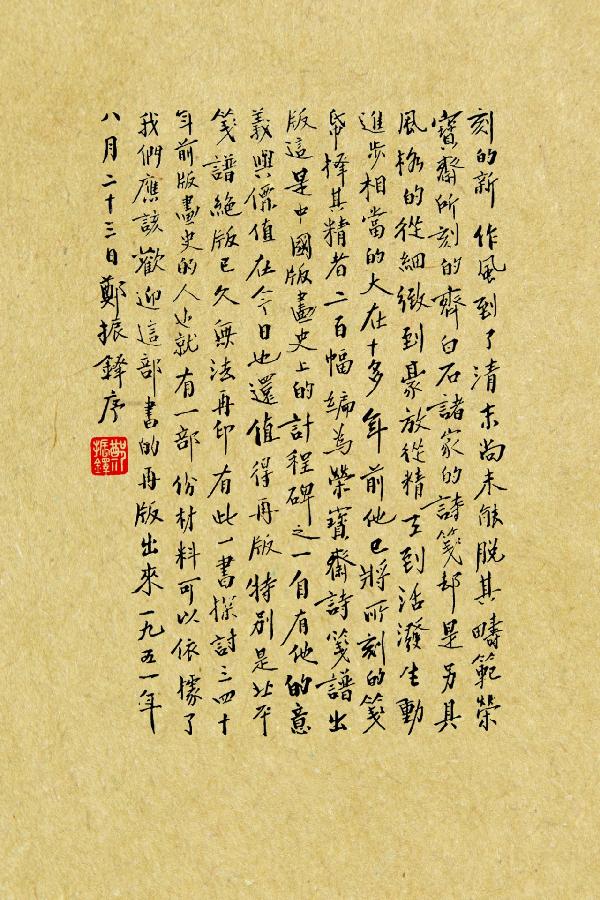 刻的新作風到了清末尚未能脱其疇範榮
寶齋所刻的齊白石諸家的詩箋却是另具
風格的從細緻到豪放從精工到活潑生動
進步相當的大在十多年前他已將所刻的箋
帋擇其精者二百幅編為榮寶齋詩箋譜出
版這是中國版畫史上的計程碑之一自有他的意
義與價值在今日也還值得再版特別是北平
箋譜絕版已久無法再印有此一書探討三四十
年前版畫史的人也就有一部份材料可以依據了
我們應該歡迎這部書的再版出來一九五一年
八月二十三日鄭振鐸序
鄭振鐸